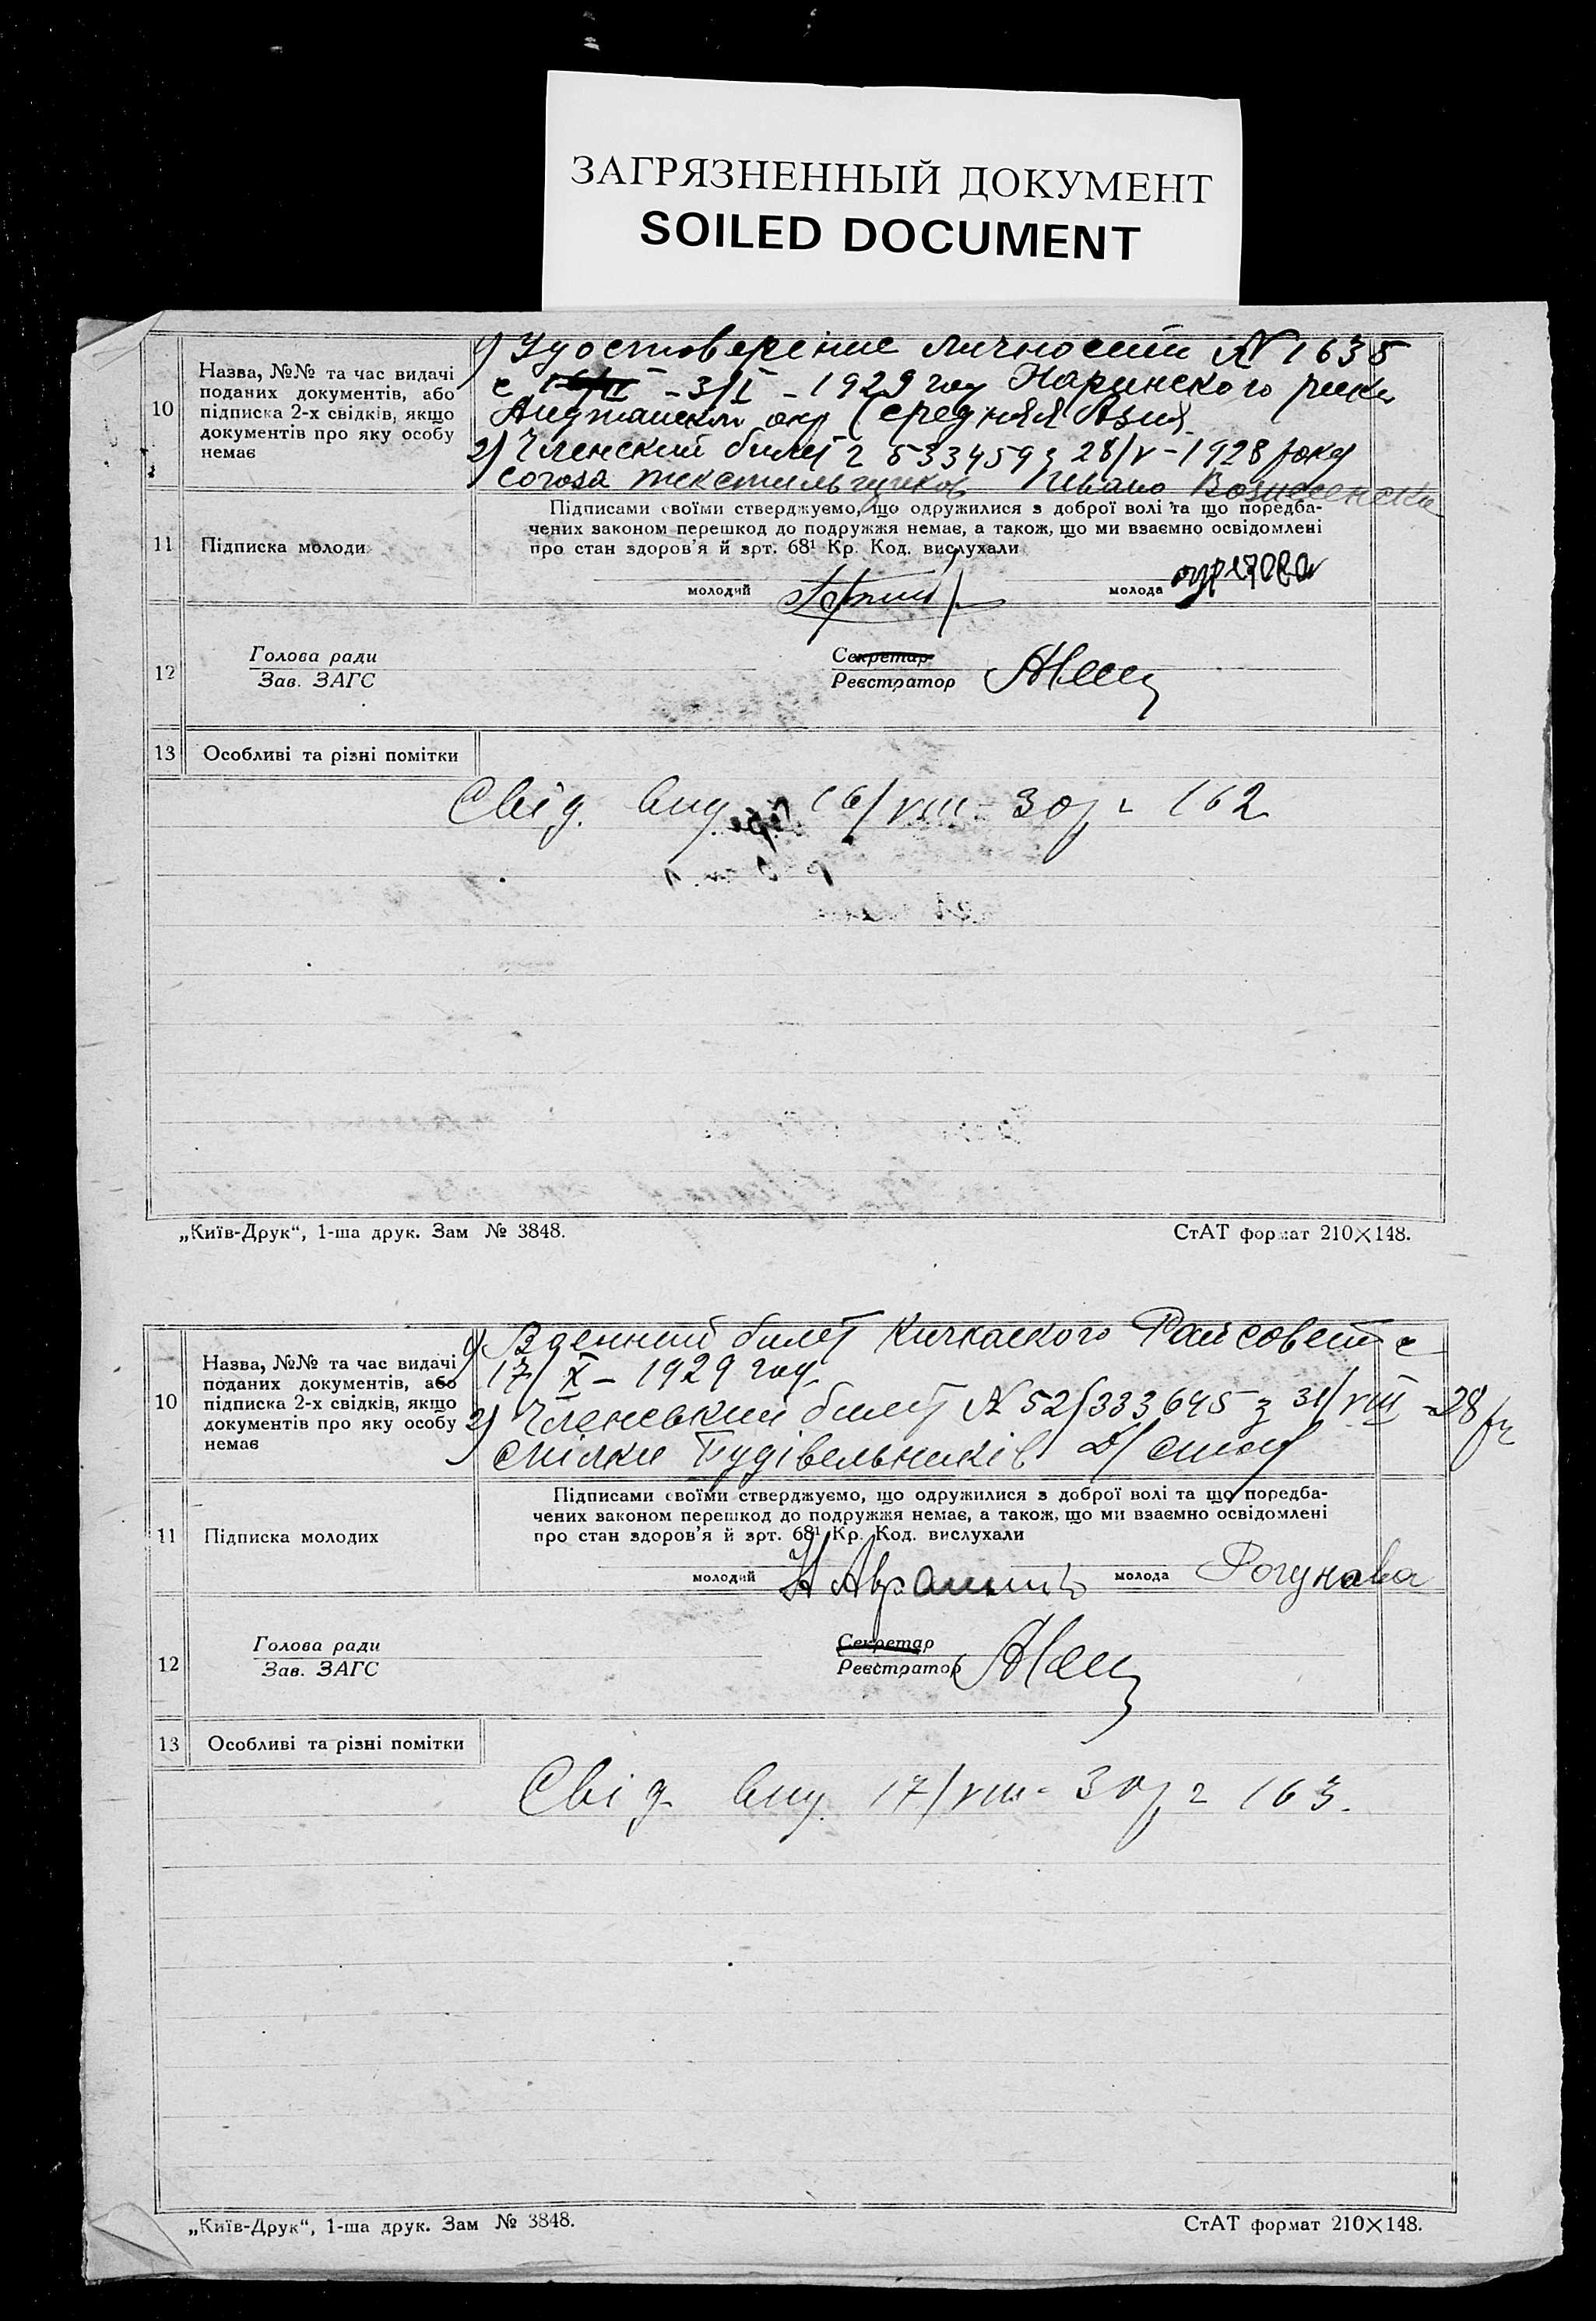 ЗАГРЯЗНЕННЫЙ ДОКУМЕНТ
SOILED DOCUMENT
10
Назва, №№ та час видачі
поданих документів, або
підписка 2-х свідків, якщо
документів про яку особу
немає
1) Удостоверение личности № 1635
с 3/I - 1929 году Наринского
окр Средняя Азия
2) Членский билет 28/V - 1928 року
союза текстильщиков Ивано Вознесенска
11
Підписка молоди
Підписами своїми стверджуємо, що одружилися з доброї волі та що поредба-
чених законом перешкод до подружжя немає, а також, що ми взаємно освідомлені
про стан здоров'я й зрт. 68¹ Кр. Код. вислухали
молодий
молода
12
Голова ради
Зав. ЗАГС
Секретар
Реєстратор
13
Особливі та різні помітки
Свід. вид. 16/VIII-30р 162
„Київ-Друк“, 1-ша друк. Зам № 3848.
СтАТ формат 210×148.
10
Назва, №№ та час видачі
поданих документів, або
підписка 2-х свідків, якщо
документів про яку особу
немає
1) Военный билет Кичкасского Райсовета с
17/X - 1929 году
2) Членський билет № 52/333645 з 31/VIII - 28 р
спілки Будівельників
11
Підписка молодих
Підписами своїми стверджуємо, що одружилися з доброї волі та що поредба-
чених законом перешкод до подружжя немає, а також, що ми взаємно освідомлені
про стан здоров'я й зрт. 68¹ Кр. Код. вислухали
молодий
молода
Рогунова
12
Голова ради
Зав. ЗАГС
Секретар
Реєстратор
13
Особливі та різні помітки
Свід. вид. 17/VIII-30р 163.
„Київ-Друк“, 1-ша друк. Зам № 3848.
СтАТ формат 210×148.